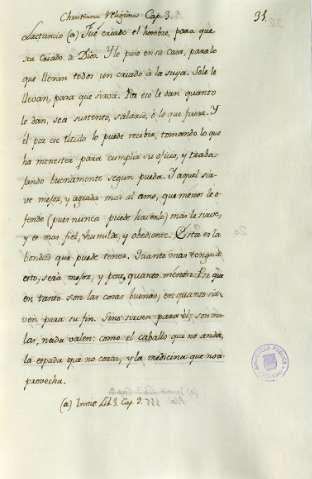 Christiano Religioso Cap. 3.
31
Lactancio (a) Fue criado el hombre, para que
sea criado à Dios. Y lo puso en su casa, para lo
que llevan todos un criado à la suya. Solo le
llevan, para que sirva. Por eso le dan quanto
le dan, sea sustento, salario, ò lo que fuera. Y
el por en titulo lo puede recibir, tomando lo que
ha menester para cumplir su oficio, y traba-
jando buenamente segun pueda. Y aquel sir-
ve mejor, y agrada mas al amo, que menos le o-
fende (pues nunca puede hacerle) mas le sirve,
y es mas fiel, humilde, y obediente. Esta es la
bondad que puede tener. Quanto mas tenga de
esto, será mejor, y peor, quanto menos. Por que
en tanto son las cosas buenas, en quanto sir-
ven para su fin. Sino sirven para el, son ma-
las, nada valen: como el caballo que no anda,
la espada que no corta, y la medicina que no a-
provecha.
(a) Lib. 3. Cap. 9.